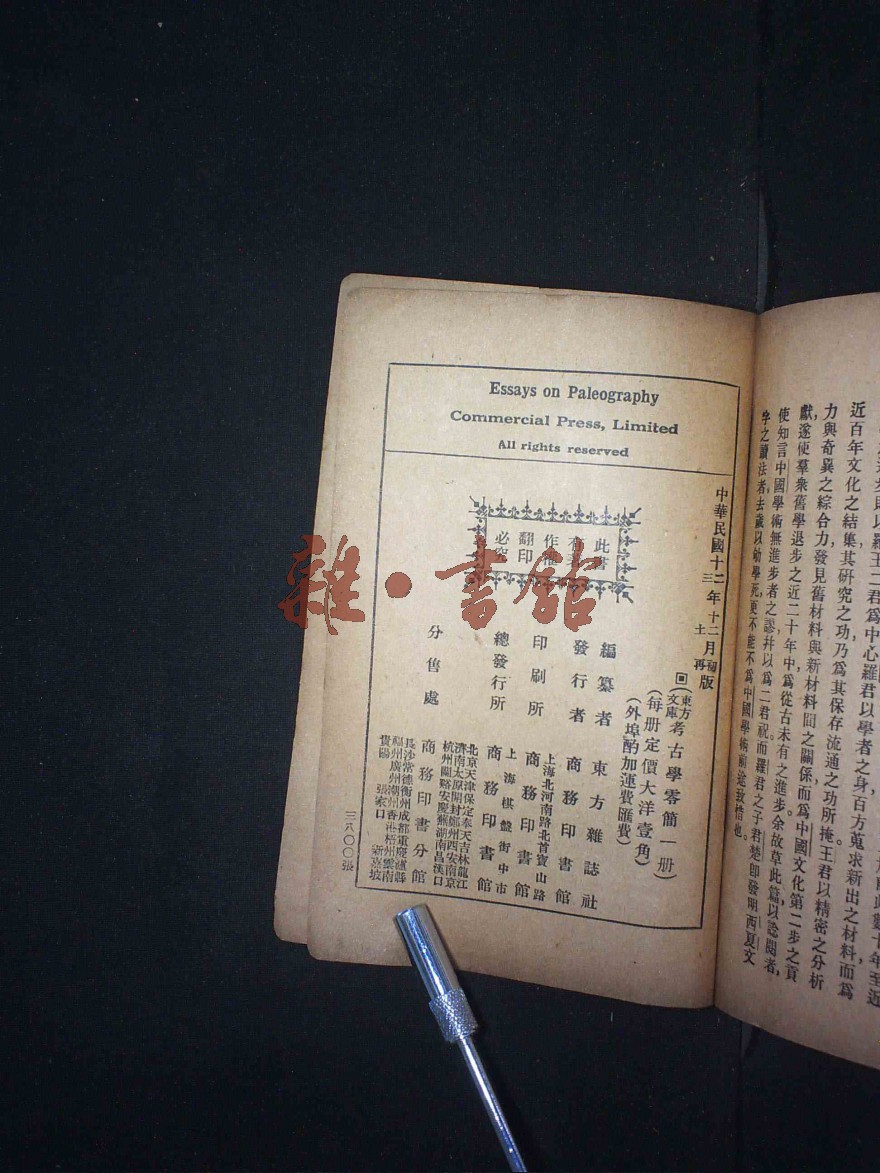 近百年文化之結集其研究之功乃爲其保存流通之功所掩王君以精密之分析
力與奇異之綜合力發見舊材料與新材料間之關係而爲中國文化第二步之貢
獻遂使羣衆舊學退步之近二十年中爲從古未有之進步余故草此篇以諗閱者,
使知言中國學術無進步者之謬幷以爲二君祝而羅君之子君楚卽發明西夏文
字之讀法者去歲以幼學死更不能不爲中國學術前途致惜也。
Essays on Paleography
Commercial Press, Limited
All rights reserved
中華民國十二年十二月初版
三 再
(東方文庫)考古學零簡一册)
(每册定價大洋壹角)
(外埠酌加運費匯費)
此書
有著
作權
翻印
必究
編纂者 東方雜誌社
發行者 商務印書館
印刷所 上海北河南路北首寶山路 商務印書館
總發行所 上海棋盤街中市 商務印書館
分售處 商務印書分館
北京天津保定奉天吉林龍江
濟南太原開封鄭州西安南京
杭州蘭谿安慶蕪湖南昌漢口
長沙常德衡州成都重慶瀘縣
福州廣州潮州香港梧州雲南
貴陽 張家口 新嘉坡
三八〇〇張
雜·書館